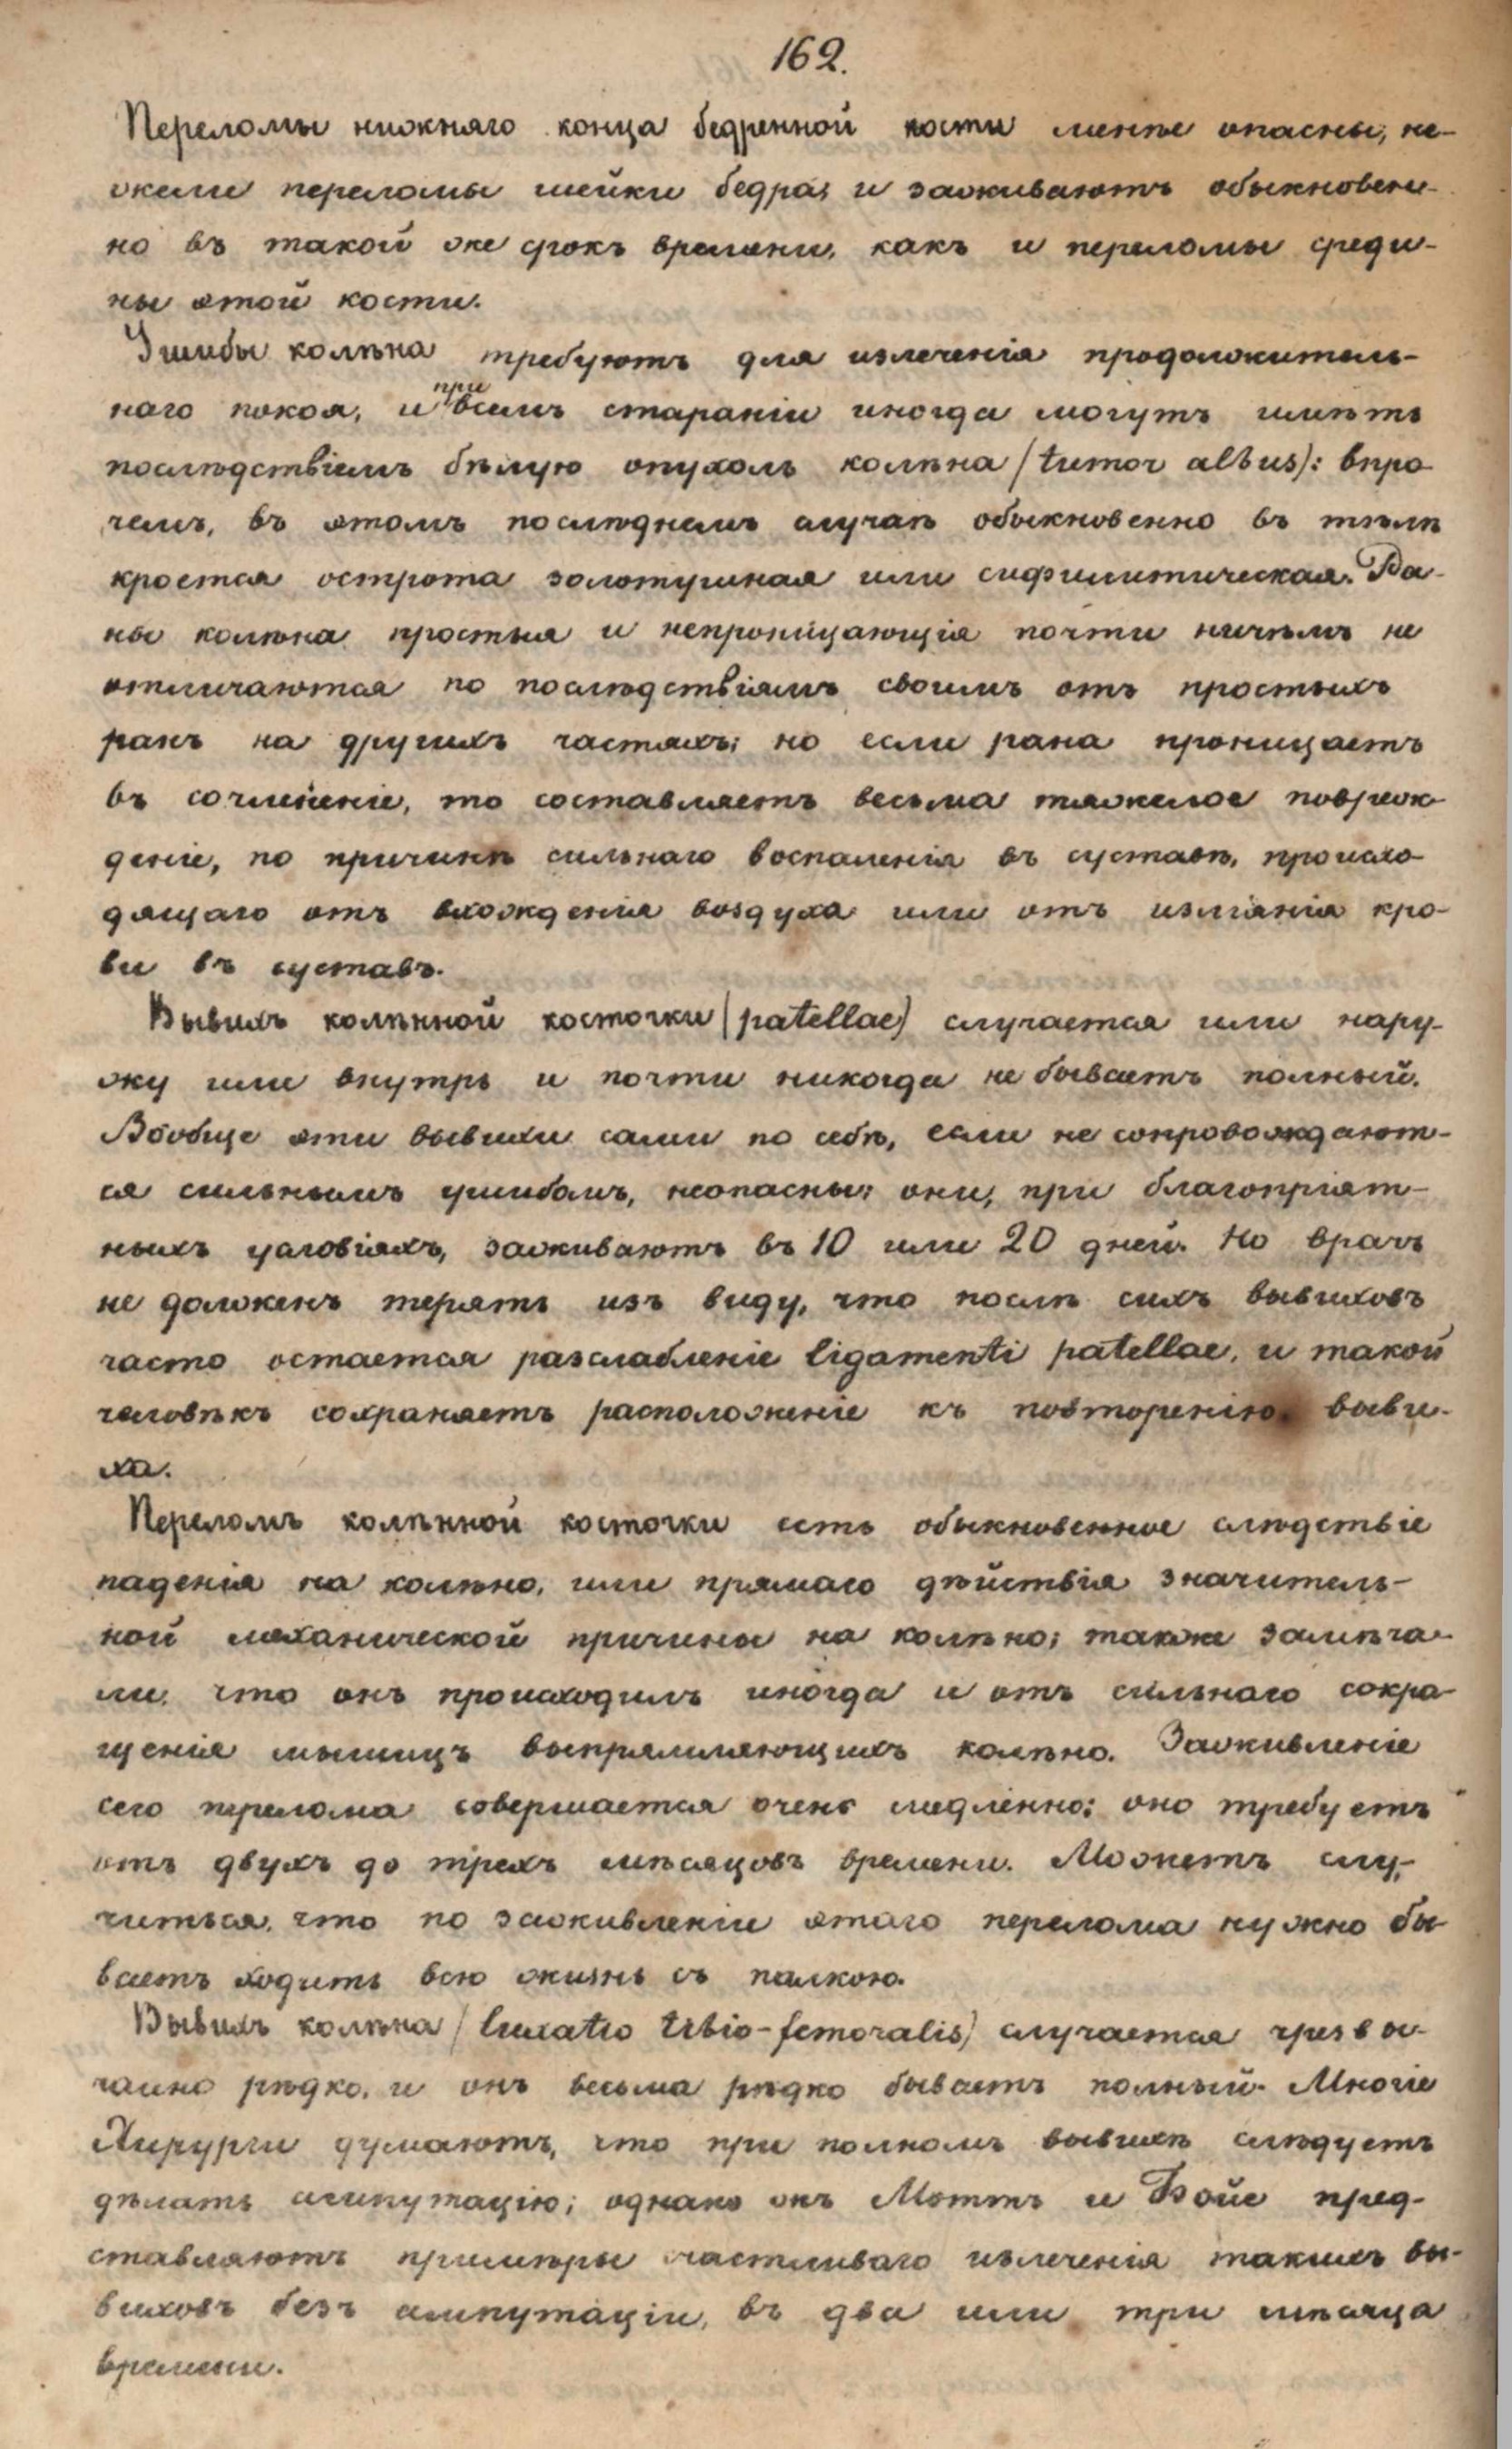 162.
Переломы нижняго конца бедренной кости менѣе опасны, не-
жели переломы шейки бедра, и заживаютъ обыкновен-
но въ такой же срокъ времени, какъ и переломы среди-
ны этой кости.
Ушибы колѣна требуютъ для излеченія продолжитель-
наго покоя, и при всемъ стараніи иногда могутъ имѣть
послѣдствіемъ бѣлую опухоль колѣна (tumor albus): впро-
чемъ, въ этомъ послѣднемъ случаѣ обыкновенно въ тѣлѣ
кроется острота золотушная или сифилитическая. Ра-
ны колѣна простыя и непроницающія почти ничѣмъ не
отличаются по послѣдствіямъ своимъ отъ простыхъ
ранъ на другихъ частяхъ; но если рана проницаетъ
въ сочлененіе, то составляетъ весьма тяжелое повреж-
деніе, по причинѣ сильнаго воспаленія въ суставѣ, происхо-
дящаго отъ вхожденія воздуха или отъ изліянія кро-
ви въ суставъ.
Вывихъ колѣнной косточки (patellae) случается или нару-
жу или внутрь и почти никогда не бываетъ полный.
Вообще эти вывихи сами по себѣ, если не сопровождают-
ся сильнымъ ушибомъ, неопасны: они, при благопріят-
ныхъ условіяхъ, заживаютъ въ 10 или 20 дней. Но врачъ
не долженъ терять изъ виду, что послѣ сихъ вывиховъ
часто остается разслабленіе ligamenti patellae, и такой
человѣкъ сохраняетъ расположеніе къ повторенію выви-
ха.
Переломъ колѣнной косточки есть обыкновенное слѣдствіе
паденія на колѣно, или прямаго дѣйствія значитель-
ной механической причины на колѣно; также замѣча-
ли, что онъ происходилъ иногда и отъ сильнаго сокра-
щенія мышицъ выпрямляющихъ колѣно. Заживленіе
сего перелома совершается очень медленно: оно требуетъ
отъ двухъ до трехъ мѣсяцовъ времени. Можетъ слу-
читься, что по заживленіи этаго перелома нужно бы-
ваетъ ходить всю жизнь съ палкою.
Вывихъ колѣна (luxatio tibio-femoralis) случается чрезвы-
чайно рѣдко, и онъ весьма рѣдко бываетъ полный. Многіе
Хирурги думаютъ, что при полномъ вывихѣ слѣдуетъ
дѣлать ампутацію; однако онъ Моттъ и Бойе пред-
ставляютъ примѣры счастливаго излеченія такихъ вы-
виховъ безъ ампутаціи, въ два или три мѣсяца
времени.